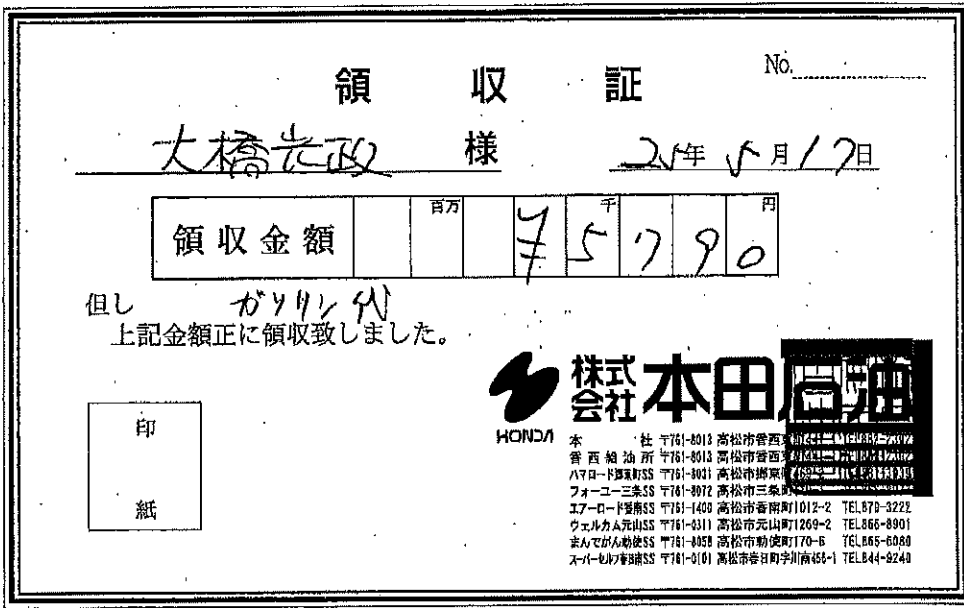 領収証
No.
大橋光政 様
25年5月17日
領収金額 百万 千 円
¥5790
但し ガソリン代
上記金額正に領収致しました。
印
紙
HONDA
株式会社 本田石油
本社 〒761-8013 高松市香西
香西給油所 〒761-8013 高松市香西
ハマロード郷東町SS 〒761-8031 高松市郷東
フォーユー三条SS 〒761-8072 高松市三条町
エアーロード香南SS 〒761-1400 高松市香南町1012-2 TEL879-3222
ウェルカム元山SS 〒761-0311 高松市元山町1269-2 TEL866-8901
まんでがん勅使SS 〒761-8058 高松市勅使町170-6 TEL865-6080
スーパーセルフ春日南SS 〒761-0101 高松市春日町字川南456-1 TEL844-9240